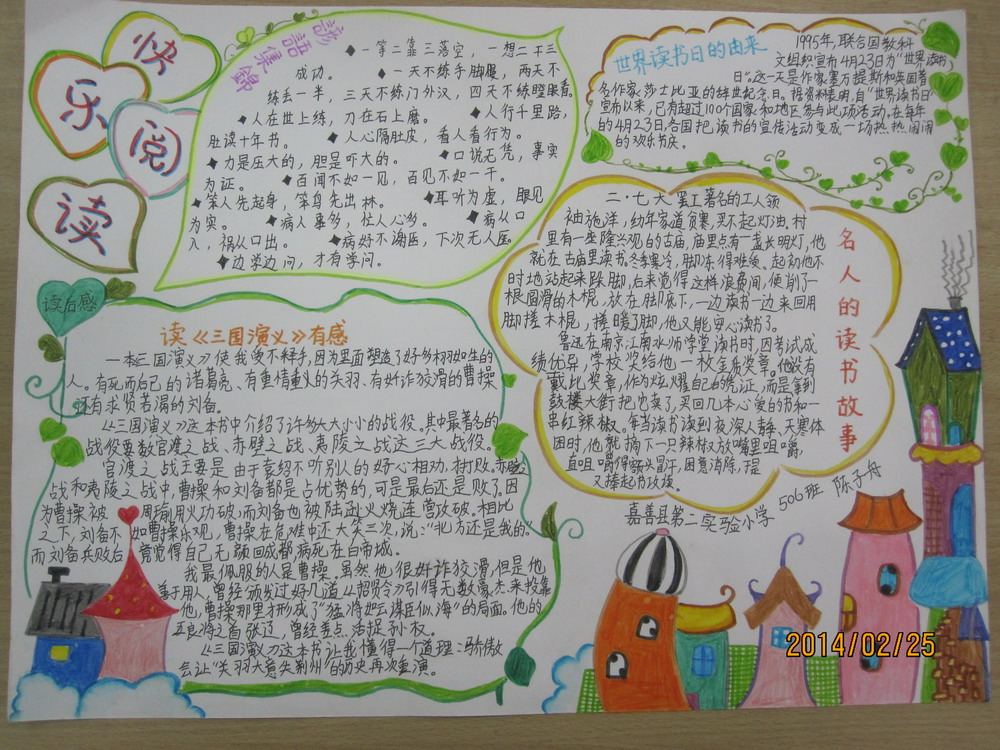 快
乐
阅
读
諺語集錦
◆一等二靠三落空，一想二干三
成功。 ◆一天不练手脚慢，两天不
练丢一半，三天不练门外汉，四天不练瞪眼看。
◆人在世上练，刀在石上磨。 ◆人行千里路，
胜读十年书。 ◆人心隔肚皮，看人看行为。
◆力是压大的，胆是吓大的。 ◆口说无凭，事实
为证。 ◆百闻不如一见，百见不如一干。
◆笨人先起身，笨鸟先出林。 ◆耳听为虚，眼见
为实。 ◆病人事多，忙人心多。 ◆病从口
入，祸从口出。 ◆病好不谢医，下次无人医
◆边学边问，才有学问。
世界读书日的由来
1995年，联合国教科
文组织宣布4月23日为“世界读书
日”。这一天是作家塞万提斯和英国著
名作家莎士比亚的辞世纪念日。据资料表明，自“世界读书日”
宣布以来，已有超过100个国家和地区参与此项活动。在每年
的4月23日，各国把读书的宣传活动变成一场热热闹闹
的欢乐节庆。
名人的读书故事
二·七大罢工著名的工人领
袖施洋，幼年家道贫寒，买不起灯油，村
里有一座隆兴观的古庙，庙里点有一盏长明灯，他
就在古庙里读书。冬季寒冷，脚冻得难受。起初他不
时地站起来跺脚，后来觉得这样浪费间，便削了一
根圆滑的木棍，放在脚底下，一边读书一边来回用
脚搓木棍，搓暖了脚，他又能安心读书了。
鲁迅在南京江南水师学堂读书时，因考试成
绩优异，学校奖给他一枚金质奖章。他没有
戴此奖章，作为炫耀自己的凭证，而是拿到
鼓楼大街把它卖了，买回几本心爱的书和一
串红辣椒。每当读书读到夜深人静、天寒体
困时，他就摘下一只辣椒放嘴里咀嚼，
直咀嚼得额头冒汗，困意消除，于是
又捧起书攻读。
嘉善县第二实验小学 506班 陈子舟
读后感
读《三国演义》有感
一本《三国演义》使我爱不释手，因为里面塑造了好多栩栩如生的
人。有死而后已的诸葛亮、有重情重义的关羽、有奸诈狡滑的曹操
还有求贤若渴的刘备。
《三国演义》这本书中介绍了许多大大小小的战役。其中最著名的
战役要数官渡之战、赤壁之战、夷陵之战这三大战役。
官渡之战主要是由于袁绍不听别人的好心相劝，才打败。赤壁之
战和夷陵之战中，曹操和刘备都是占优势的，可是最后还是败了。因
为曹操被周瑜用火功破，而刘备也被陆逊火烧连营攻破。相比
之下，刘备不如曹操乐观，曹操在危难中还大笑三次，说：“北方还是我的”。
而刘备兵败后竟觉得自己无颜回成都，病死在白帝城。
我最佩服的人是曹操。虽然他很奸诈狡滑，但是他
善于用人，曾经颁发过好几道《招贤令》引得无数豪杰来投靠
他，曹操那里才形成了“猛将如云，谋臣似海”的局面。他的
五良将之首张辽，曾经差点活捉孙权。
《三国演义》这本书让我懂得一个道理：骄傲
会让“关羽大意失荆州”的历史再次重演。
2014/02/25